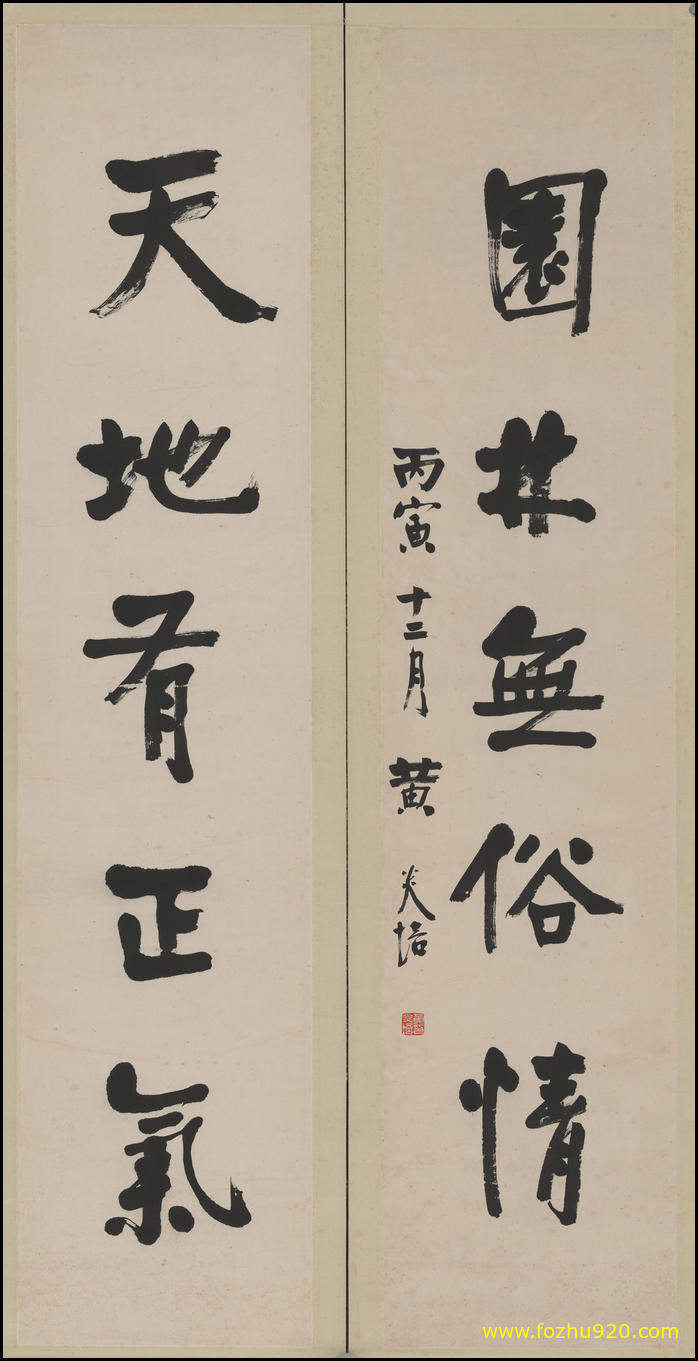 園林無俗情
丙寅十二月 黄炎培
天地有正氣
www.fozhu920.com